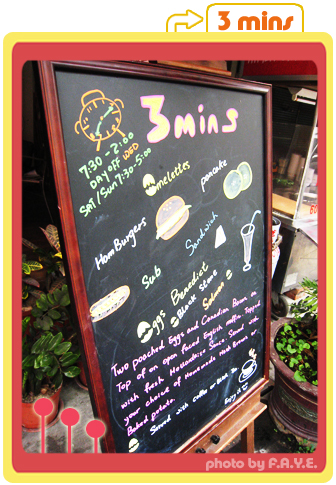 3 mins
3 mins
7:30 - 2:00
DAY OFF WED
SAT/SUN 7:30-5:00
Omelettes
pancake
HamBurgers
Sandwich
Sub
Eggs Benedict
Black Stone
Salmon
Two poached Eggs and Canadian Bacon on
Top of an open Faced English muffin Topped
with fresh Hollandaise Sauce Served with
your choice of Homemade Hash Brown or
Baked potato.
Served with coffee or
Enjoy it
photo by F.A.Y.E.